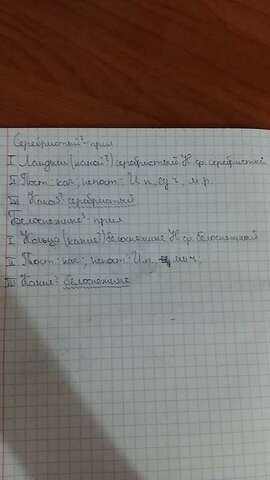 Серебристый³-прил
I Ландыш (какой?) серебристый Н.ф. серебристый
II Пост: кач; непост: И.п, ед.ч, м.р.
III Какой? серебристый
Белоснежные³-прил
I Кольца (какие?) белоснежные Н.ф. белоснежный
II Пост: кач; непост: И.п., мн.ч.
III Какие? белоснежные